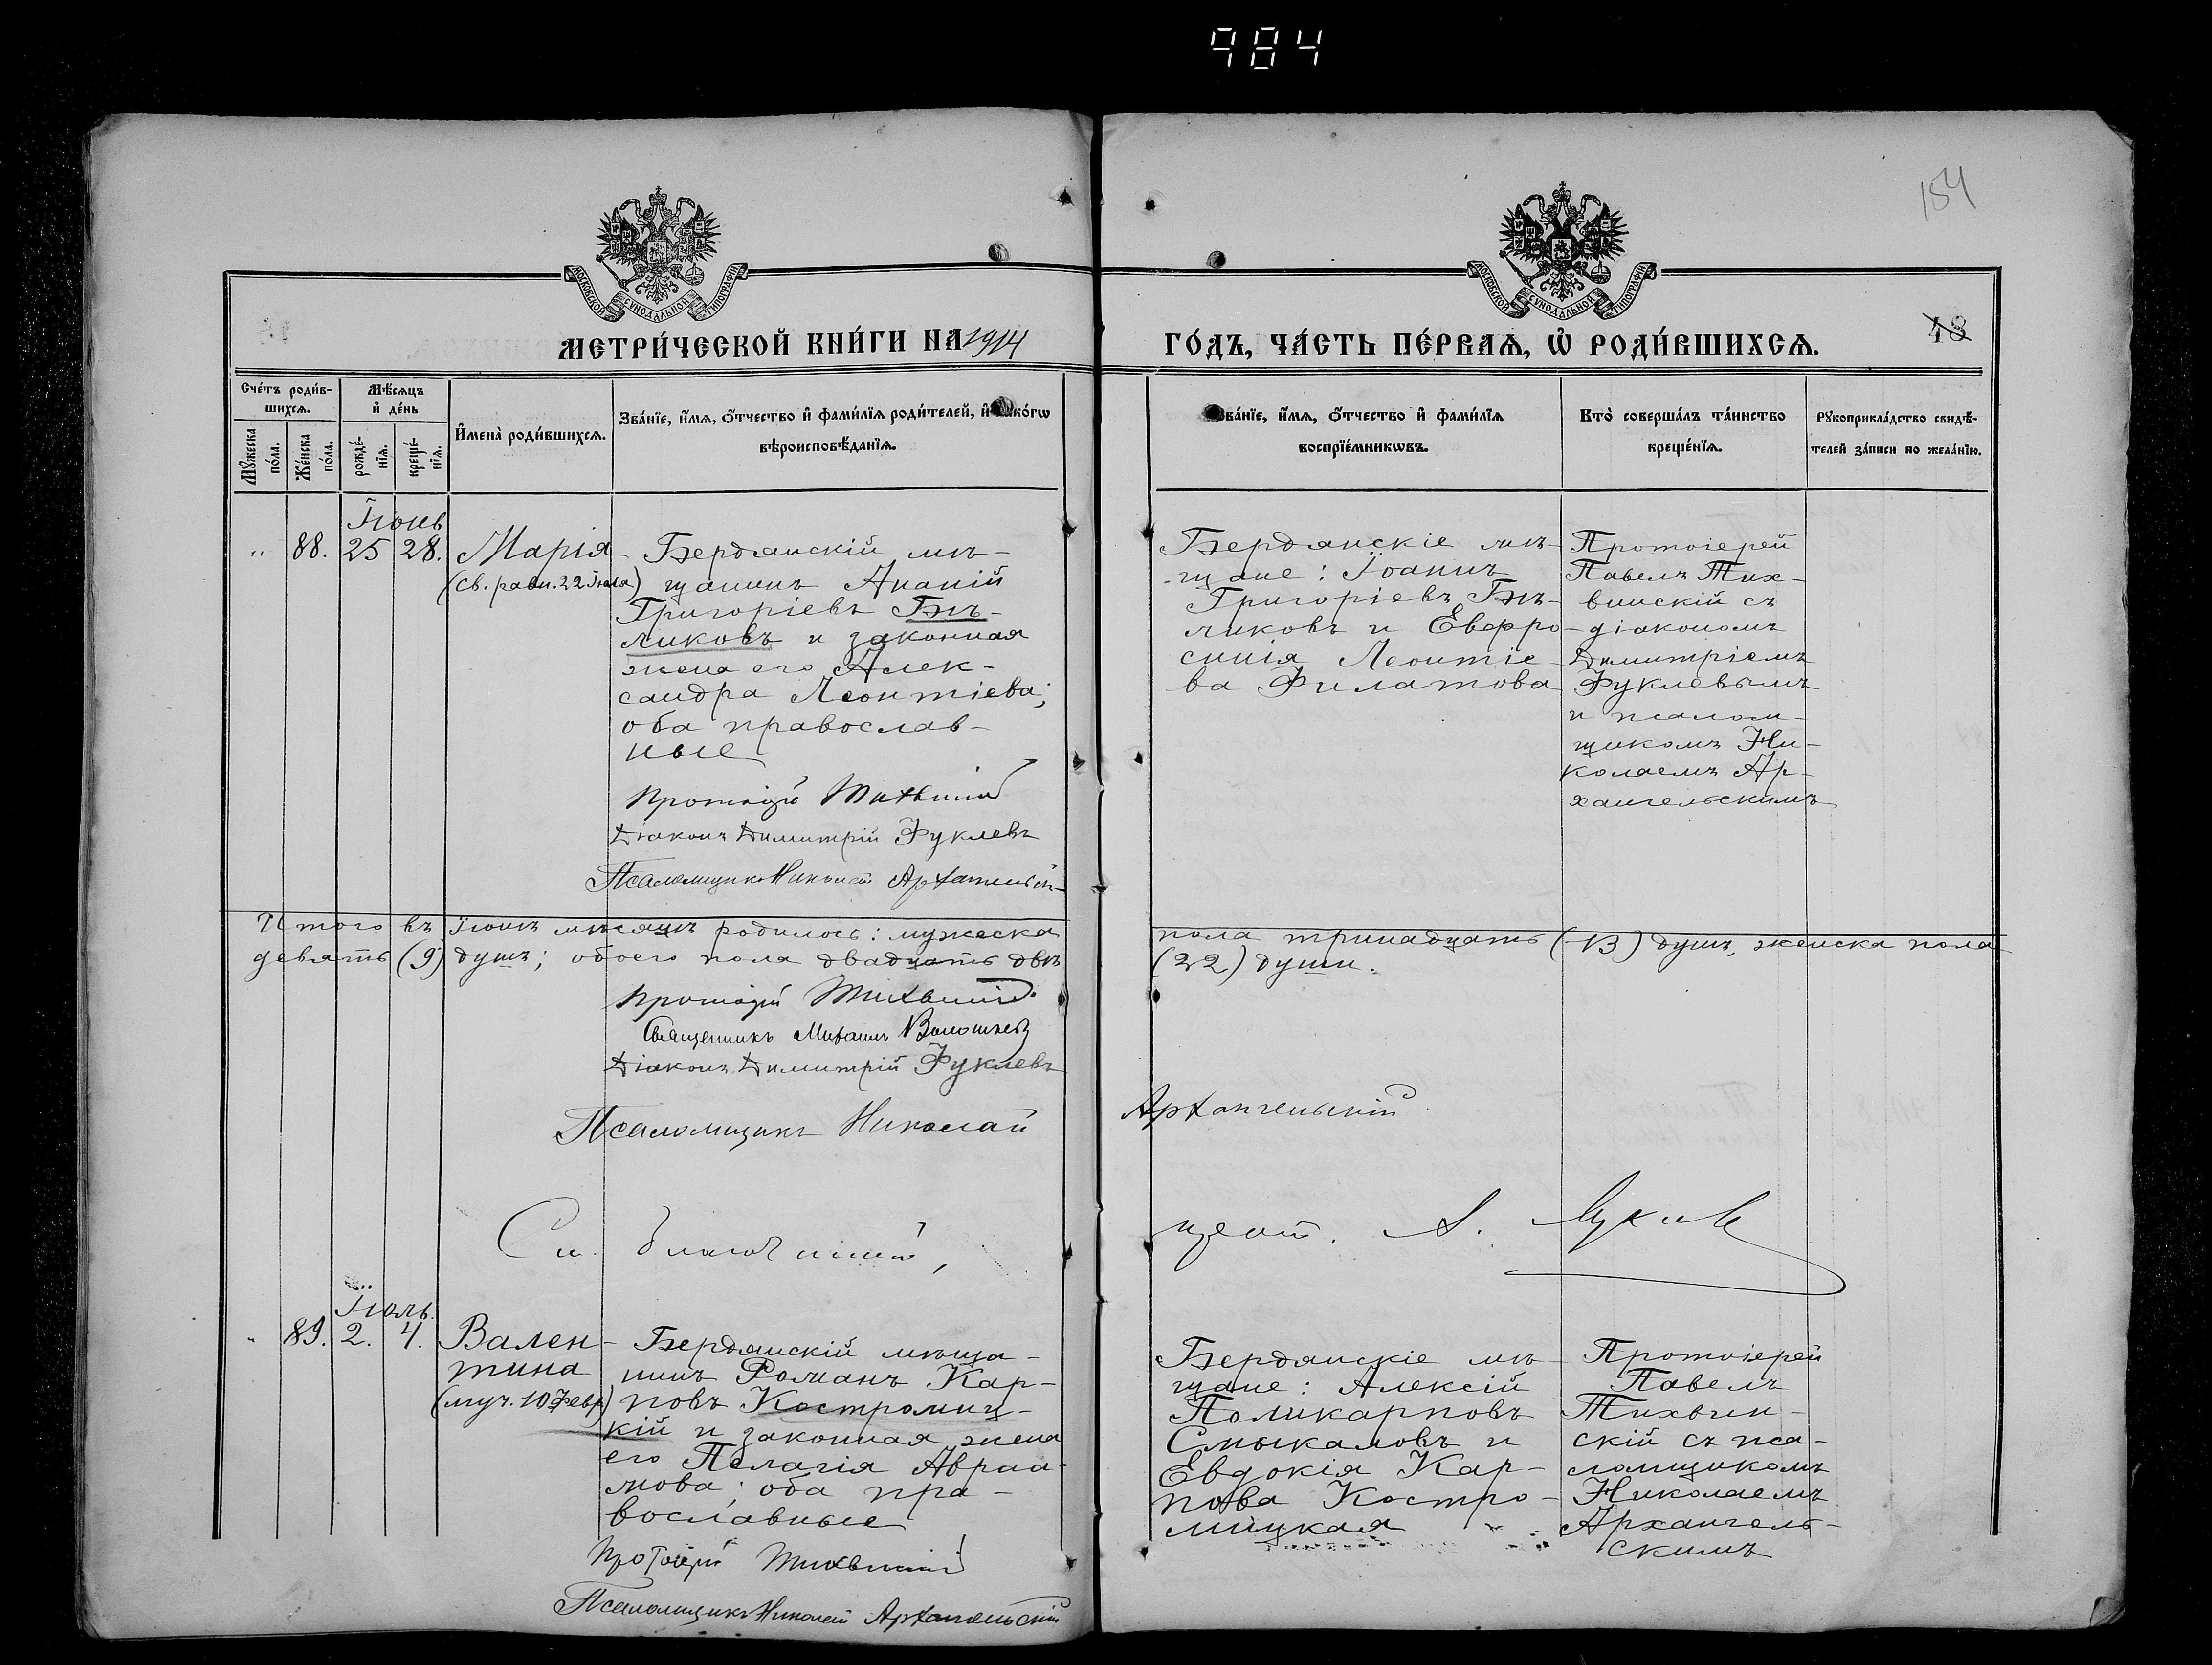 984
154
МОСКОВСКОЙ СУНОДАЛЬНОЙ ТИПОГРАФІИ
МОСКОВСКОЙ СУНОДАЛЬНОЙ ТИПОГРАФІИ
МЕТРИ́ЧЕСКОЙ КНИ́ГИ НА 1914
ГО́ДЪ, ЧА́СТЬ ПЕ́РВАѦ, Ѡ РОДИ́ВШИХСѦ.
48
Сче́тъ роди́в-
шихсѧ.
Мѣ́сѧцъ
и҆ де́нь
Мꙋ́жеска
по́ла.
Же́нска
по́ла.
рожде́-
нїѧ.
креще́-
нїѧ.
И҆мена̀ роди́вшихсѧ.
Зва́нїе, и҆́мѧ, ѻ҆́тчество и҆ фами́лїѧ роди́телей, и҆ како́гѡ
вѣроисповѣ́данїѧ.
Зва́нїе, и҆́мѧ, ѻ҆́тчество и҆ фами́лїѧ
воспрїе́мникѡвъ.
Кто̀ соверша́лъ та́инство
креще́нїѧ.
Рꙋкоприкла́дство свидѣ́-
телей за́писи по жела́нїю.
Іюнь
" 88. 25 28. Марія
(св. равн. 22 Іюля)
Бердянскій мѣ-
щанинъ Ананій
Григоріевъ Бѣ-
ликовъ и законная
жена его Алек-
сандра Леонтіева;
оба православ-
ные
Протоіерей Тихвинскій
Діаконъ Димитрій Фуклевъ
Псаломщикъ Николай Архангельскій
Бердянскіе мѣ-
щане: Іоаннъ
Григоріевъ Бѣ-
ликовъ и Евфро-
синія Леонтіе-
ва Филатова
Протоіерей
Павелъ Тих-
винскій съ
діакономъ
Димитріемъ
Фуклевымъ
и псалом-
щикомъ Ни-
колаемъ Ар-
хангельскимъ
Итого въ Іюнѣ мѣсяцѣ родилось: мужеска пола тринадцать (13) душъ, женска пола
девять (9) душъ; обоего пола двадцать двѣ (22) души.
Протоіерей Тихвинскій
Священникъ Михаилъ
Діаконъ Димитрій Фуклевъ
Псаломщикъ Николай Архангельскій
благочинный,
А.
Іюль
" 89. 2. 4. Вален-
тина
(муч. 10 Февр.)
Бердянскій мѣща-
нинъ Романъ Кар-
повъ Костромиц-
кій и законная жена
его Пелагія Авраа-
мова; оба пра-
вославные
Протоіерей Тихвинскій
Псаломщикъ Николай Архангельскій
Бердянскіе мѣ-
щане: Алексій
Поликарповъ
Смыкаловъ и
Евдокія Кар-
пова Костро-
мицкая
Протоіерей
Павелъ
Тихвин-
скій съ пса-
ломщикомъ
Николаемъ
Архангель-
скимъ